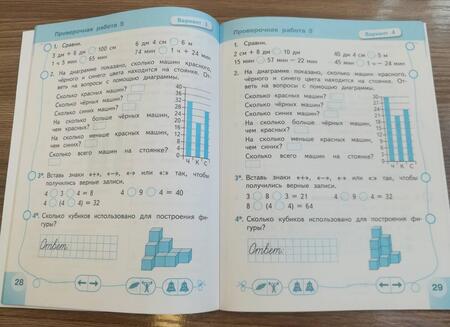 Проверочная работа 5
Вариант 3
1. Сравни.
3 дм + 8 дм 100 см
6 дм 4 см 6 м
1 ч 5 мин 65 мин
74 мин 1 ч + 24 мин
2. На диаграмме показано, сколько машин красного,
чёрного и синего цвета находится на стоянке. От-
веть на вопросы с помощью диаграммы.
Сколько красных машин?
Сколько чёрных машин?
Сколько синих машин?
На сколько больше чёрных машин,
чем красных?
На сколько меньше красных машин,
чем синих?
Сколько всего машин на стоянке?
40
36
32
28
24
20
16
12
8
4
0
Ч К С
3*. Вставь знаки «+», «-», «·» или «:» так, чтобы
получились верные записи.
4 3 4 = 8
4 9 4 = 40
4 (4 4) = 32
4*. Сколько кубиков использовано для построения фи-
гуры?
Ответ:
28
Проверочная работа 5
Вариант 4
1. Сравни.
2 см + 8 дм 10 дм
40 дм 4 см 5 м
15 мин 57 мин − 22 мин
45 мин 1 ч − 24 мин
2. На диаграмме показано, сколько машин красного,
чёрного и синего цвета находится на стоянке. От-
веть на вопросы с помощью диаграммы.
Сколько красных машин?
Сколько чёрных машин?
Сколько синих машин?
На сколько больше чёрных машин,
чем красных?
На сколько меньше красных машин,
чем синих?
Сколько всего машин на
стоянке?
Ч К С
3*. Вставь знаки «+», «-», «·» или «:» так, чтобы
получились верные записи.
3 8 3 = 21
4 9 4 = 32
8 (4 4) = 64
4*. Сколько кубиков использовано для построения фи-
гуры?
Ответ:
29